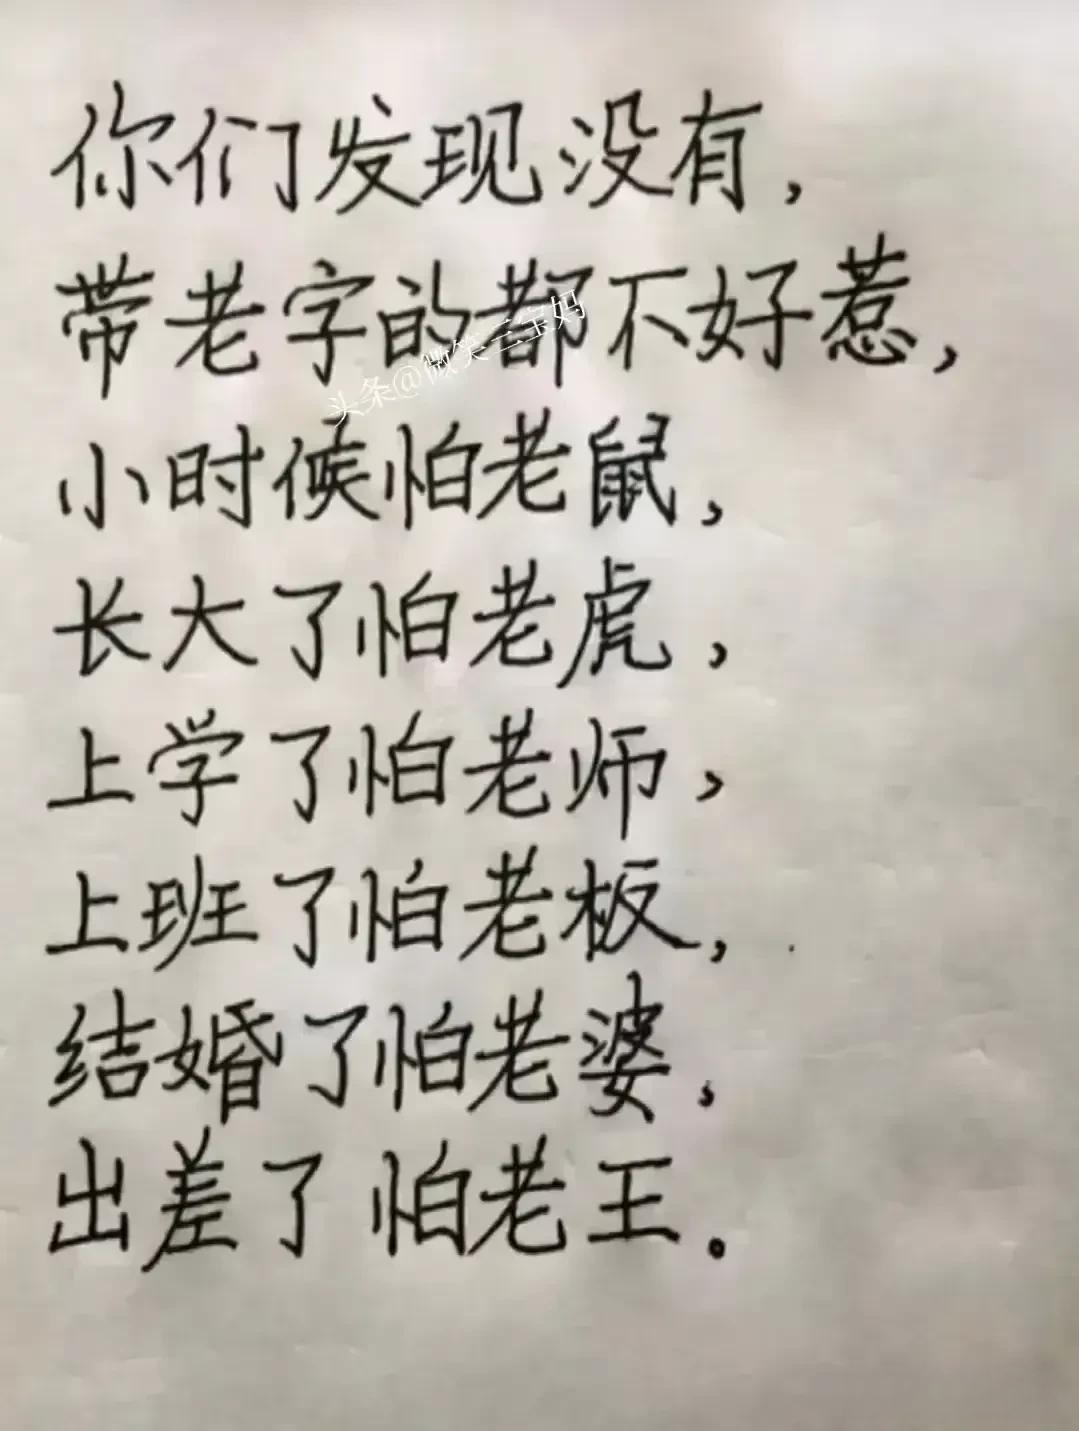 你们发现没有，
带老字的都不好惹，
头条@微笑三宝妈
小时候怕老鼠，
长大了怕老虎，
上学了怕老师，
上班了怕老板，
结婚了怕老婆，
出差了怕老王。